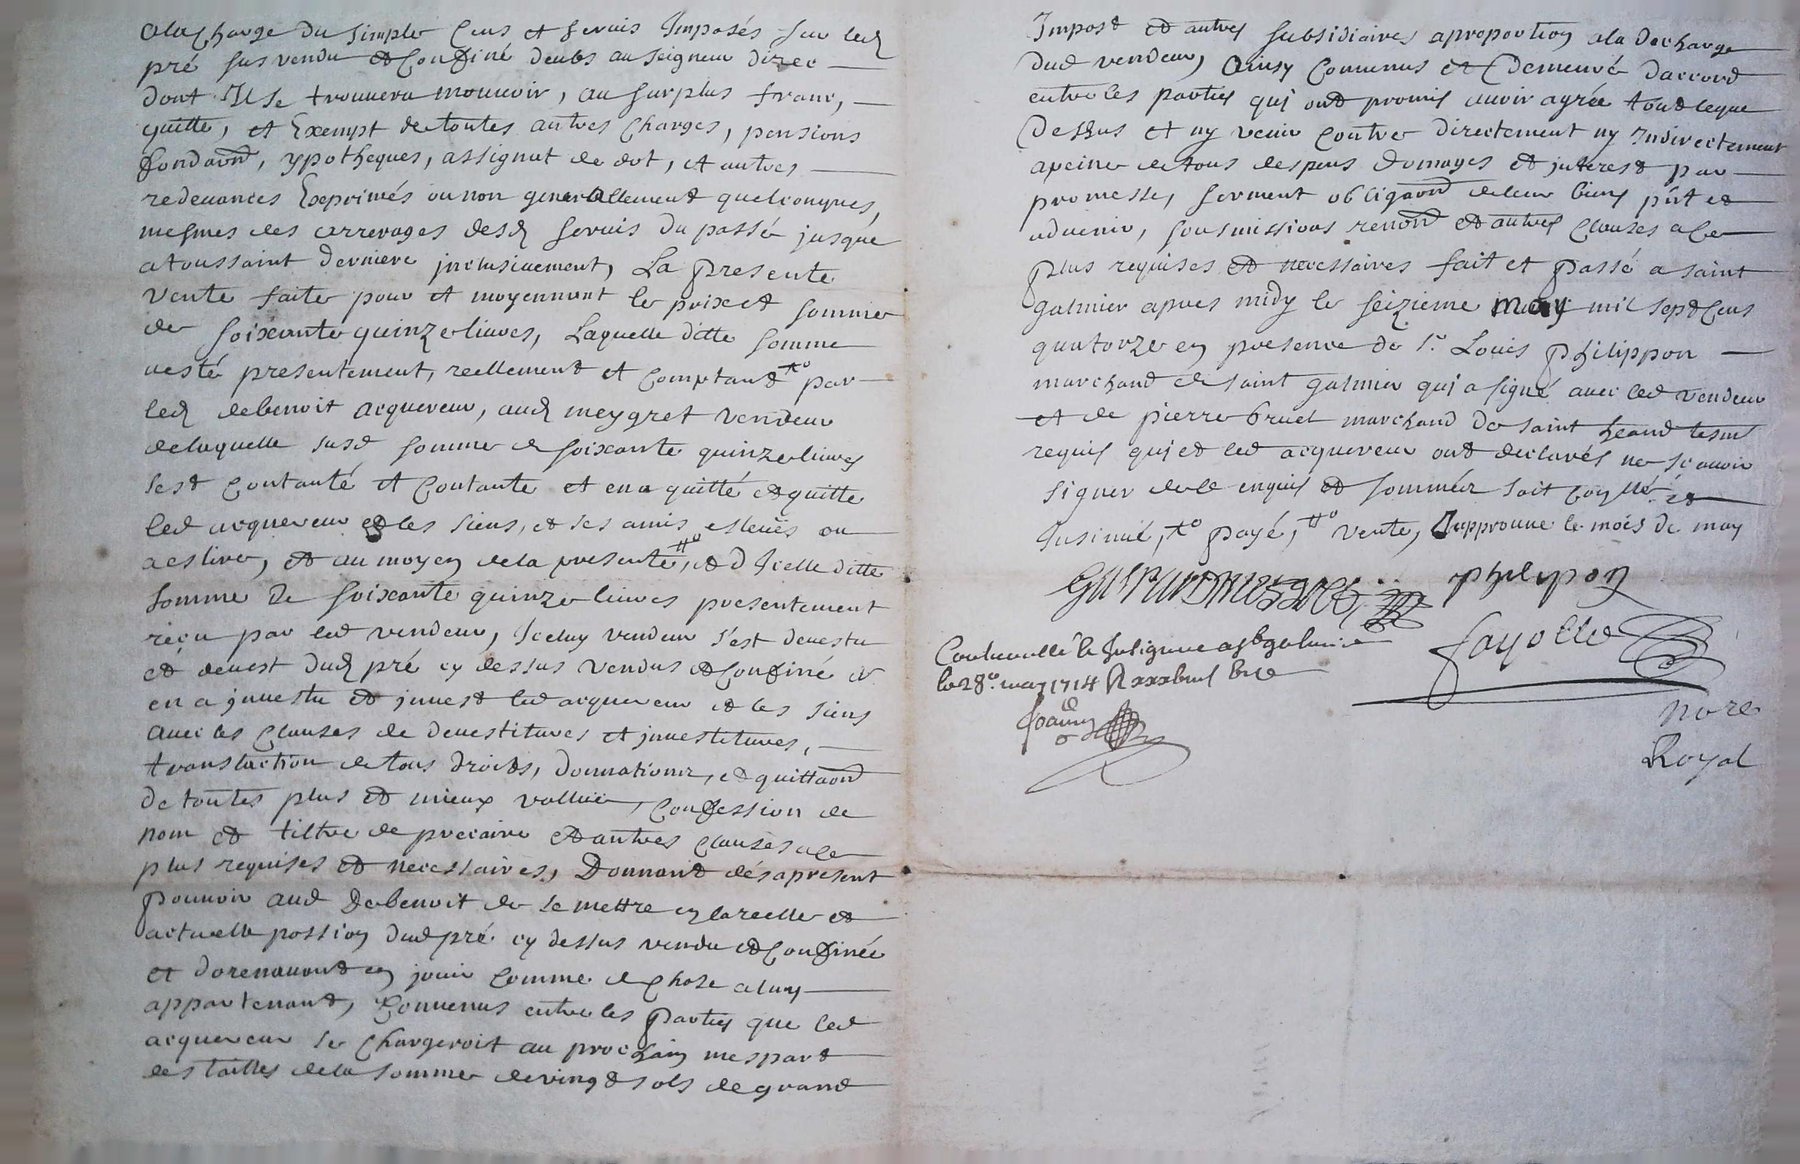 ala Charge du simple Cens et servis Imposés sur led
pré sus vendu et Confiné deubs au seigneur direc
dont Il se trouuera mouuoir, au surplus franc,
quitte, et Exempt de toutes autres Charges, pensions
fondaôns, ypotheques, assignat de dot, et autres
redeuances Exprimés ou non generallement quelconques,
mesmes des arrerages desd servis du passé jusque
a toussaint derniere jnclusiuement, La presente
vente faite pour et moyennant le prix et somme
de soixante quinze liures, Laquelle ditte somme
a esté presentement, reellement et Comptant +° par
led debenoit acquereur, aud meygret vendeur
de laquelle susd somme de soixante quinze liures
sest Contanté et Contante et en a quitté et quitte
led acquereur et les siens, et ses amis esleus ou
a eslire, et au moyen de la presente ++°, et d Icelle ditte
somme de soixante quinze liures presentement
reçu par led vendeur, Iceluy vendeur s'est deuestu
et deuest dud pré cy dessus vendus et Confiné et
en a jnuestu et jnuest led acquereur et les siens
auec les Clauses de deuestitures et jnuestitures,
translaction de tous droits, donnations, et quittaôns
de toutes plus et mieux vallüe, Confession de
nom et tiltre de precaire et autres Clauses a ce
plus requises et necessaires, Donnant dés apresent
pouuoir aud Debenoit de se mettre en la reelle et
actuelle possion dud pré cy dessus vendu et Confinée
et dorenauant en jouir Comme de Chose a luy
appartenant, Conuenus entre les parties que led
acquereur se Chargeroit au prochain mespart
des tailles de la somme de vingt sols de grand
Impost et autres subsidiaires a proportion a la decharge
dud vendeur, Ainsy Conuenus et Demeuré d'accord
entre les parties qui ont promis auoir agrée tout le que
Dessus et ny venir Contre directement ny Indirectement
a peine de tous despens domages et jnterest par
promesse, serment obligaôn de leur biens pñt et
aduenir, sousmissions renonô et autres Clauses a ce
plus requises et necessaires fait et passé a saint
galmier apres midy le seizieme may mil sept Cens
quatorze en presence de sr. Louis philippon
marchand de saint galmier qui a signé auec led vendeur
et de pierre bruel marchand de saint heand tesm
requis qui et led acquereur ont declarés ne scauoir
signer de ce enquis et sommér soit Conllé et
Insinué, +° payé, ++° vente, Japprouue le mois de may
Gaspard Meygret philipon
Controuollé & Insigniue a st galmier
fayolle
le 28e. may 1714
Nore
Royal